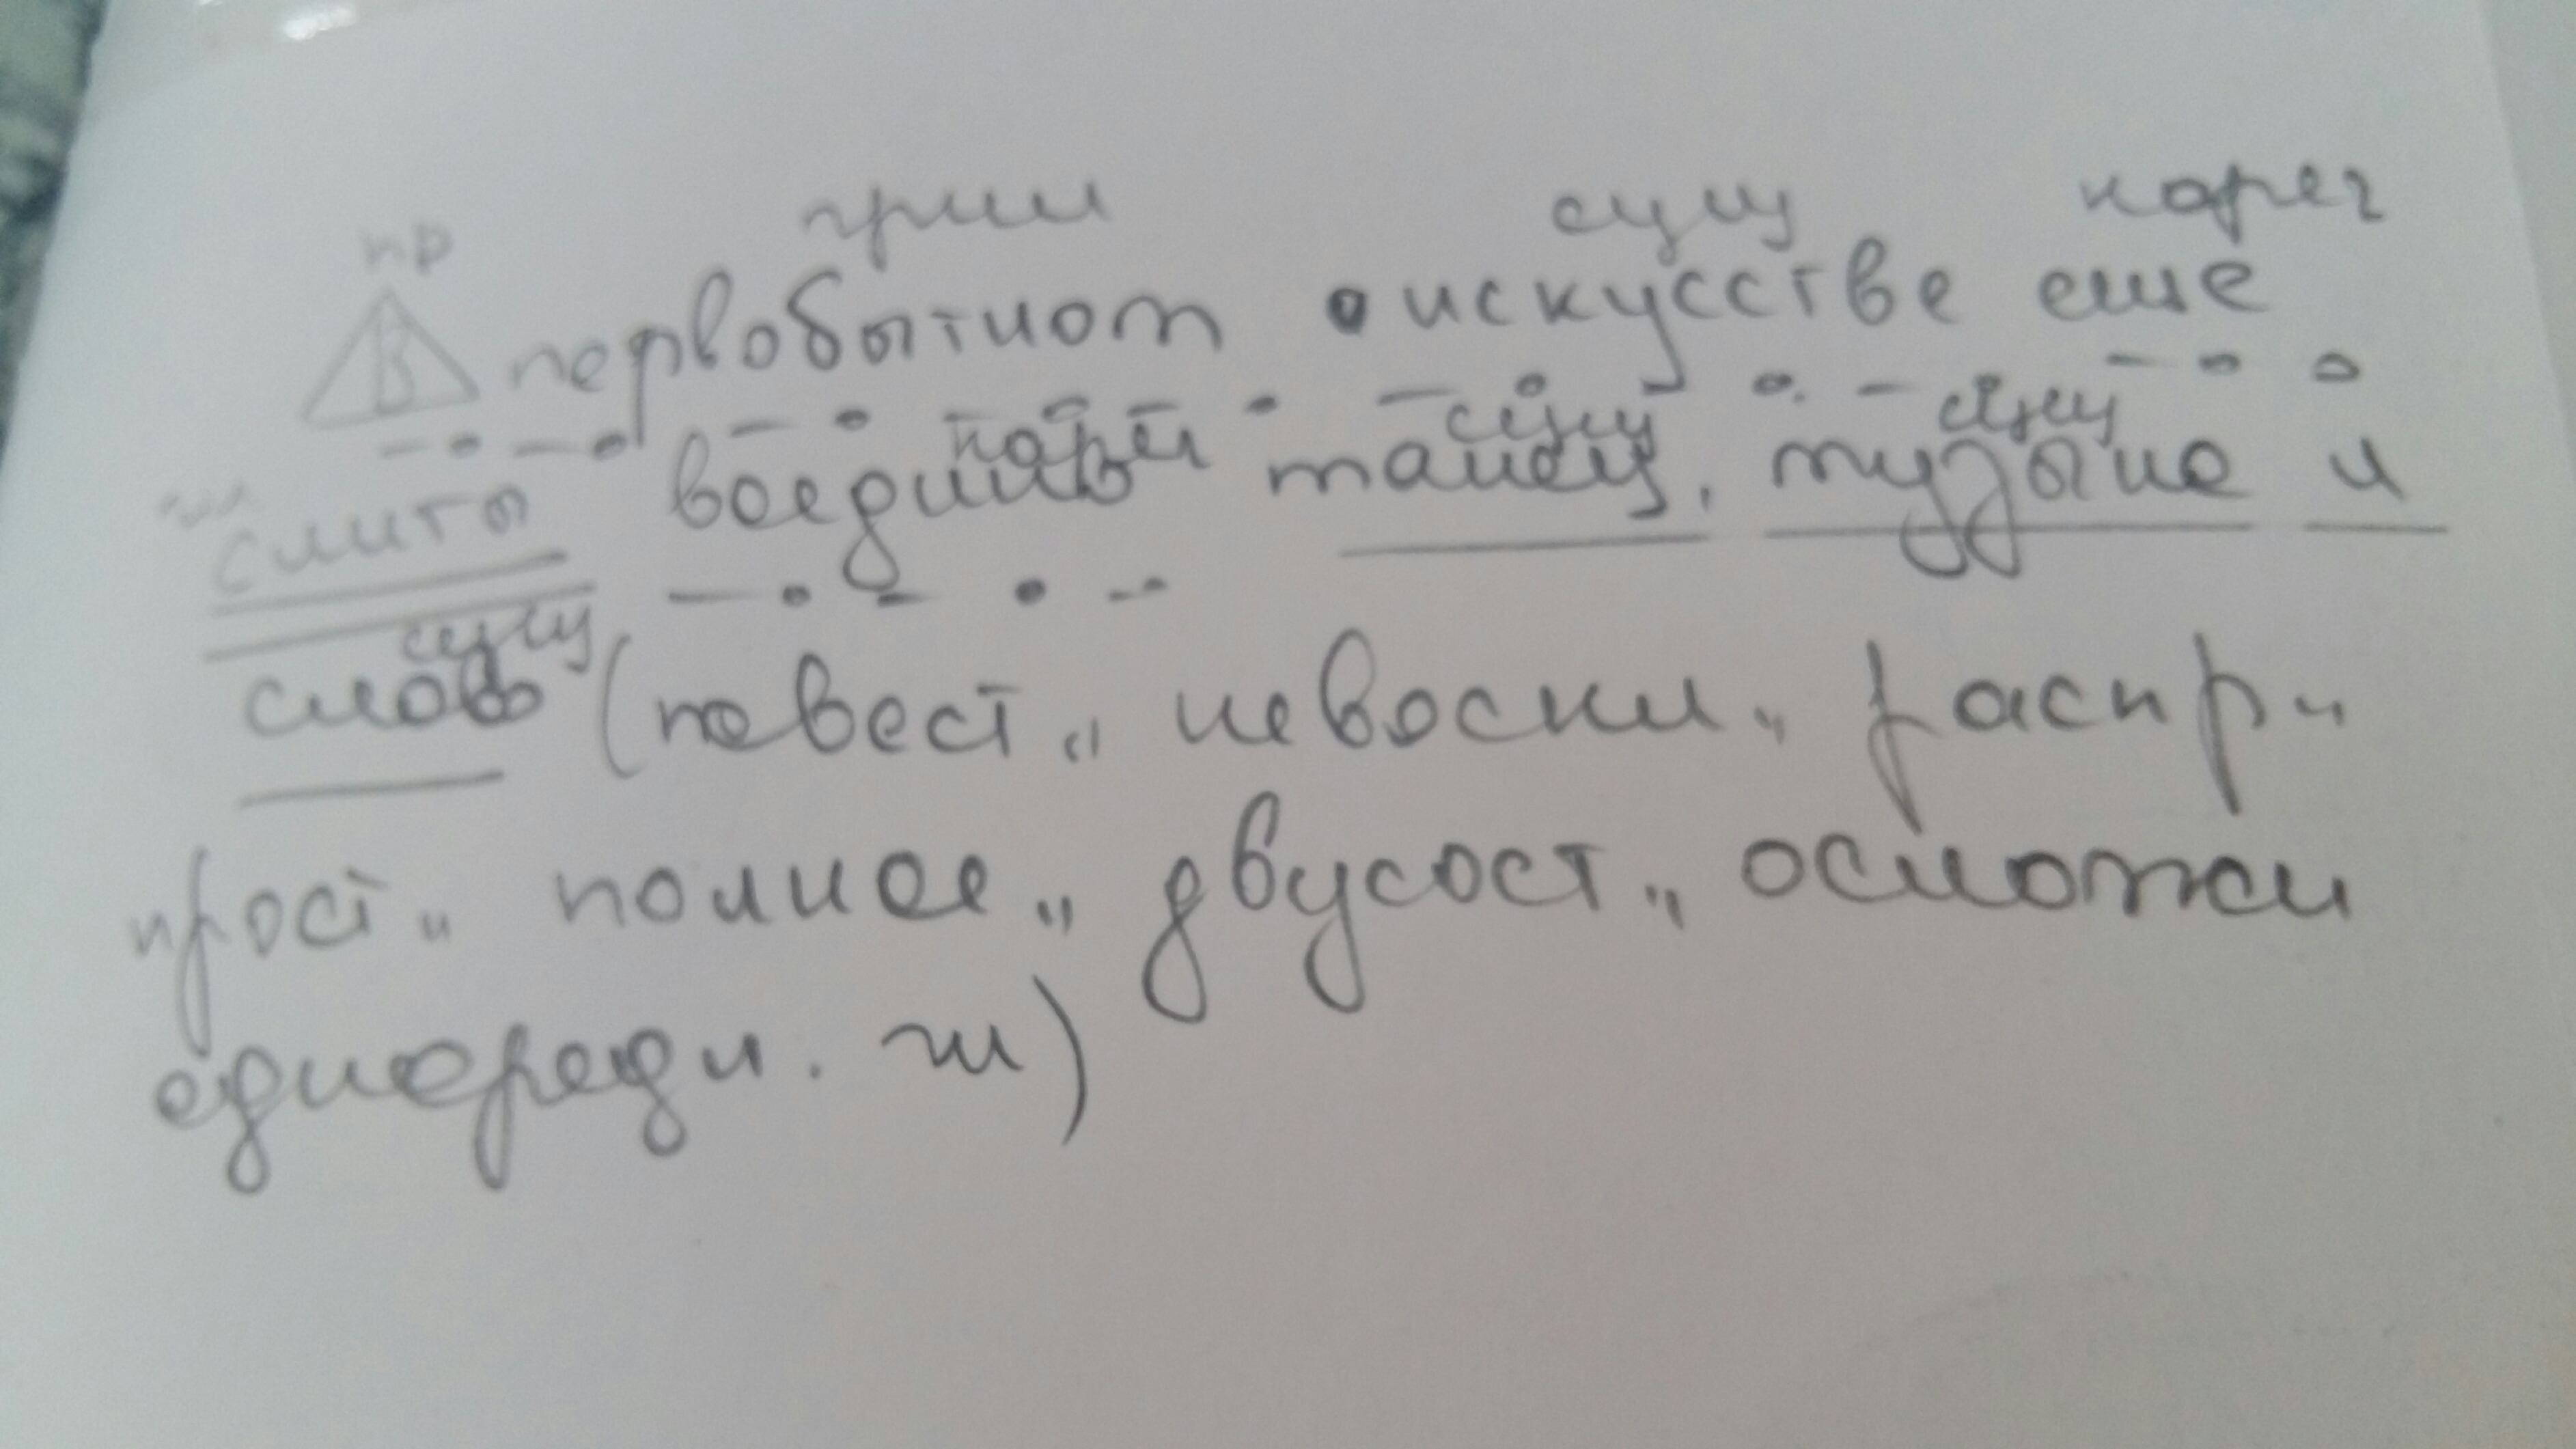 пр прил сущ нареч
В первобытном искусстве еще
нареч сущ сущ
слиты воедино танец, музыка и
сущ
слово (повест., невоскл., распр.,
прост., полное., двусост., осложн
однородн. чл)